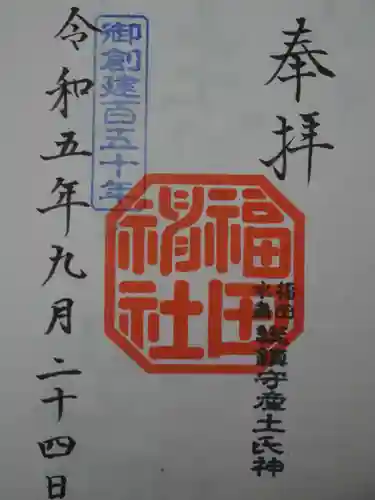 奉拝
福田
稍社
総鎮守産土氏神
御創建百五十年
令和五年九月二十四日